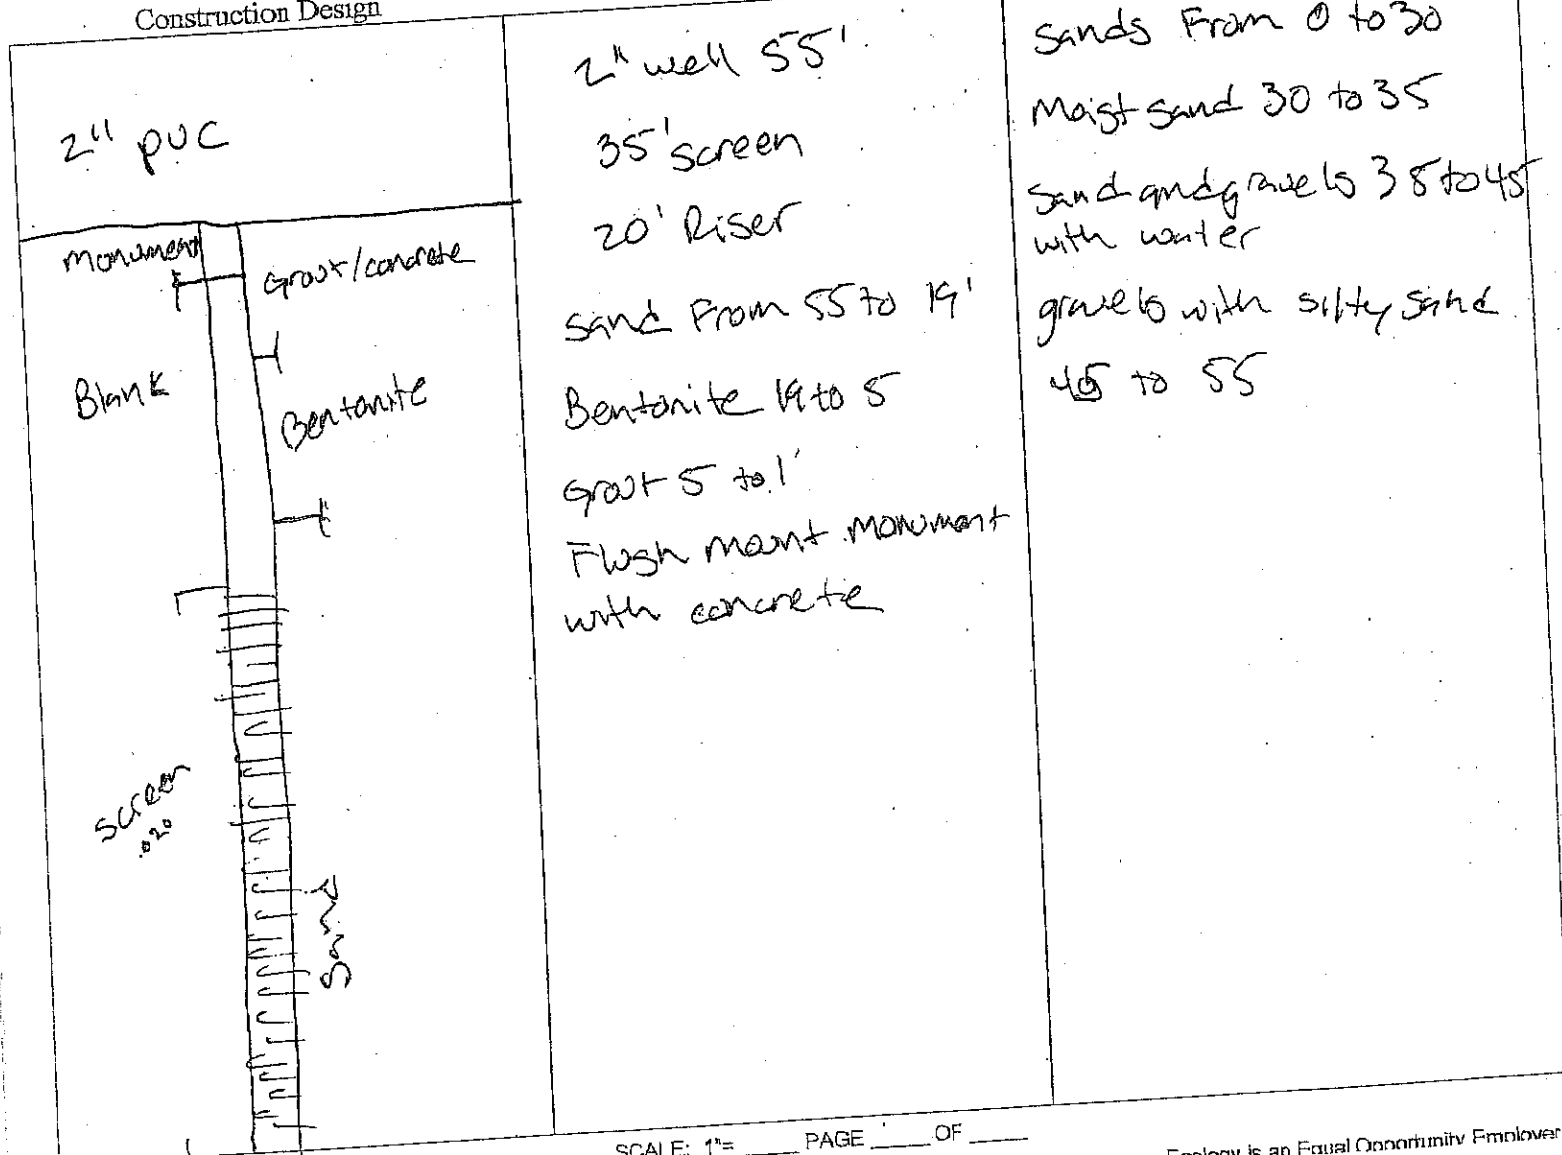 Construction Design
2" PVC
Monument
Grout/concrete
Blank
Bentonite
Screen
.020
Sand
2" well 55'
35' screen
20' Riser
Sand From 55 to 19'
Bentonite 19 to 5
Grout 5 to 1'
Flush mount monument
with concrete
Sands From 0 to 30
Moist sand 30 to 35
Sand and gravels 35 to 45
with water
gravels with silty sand
45 to 55
SCALE: 1"= ____ PAGE ____ OF ____
Ecology is an Equal Opportunity Employer